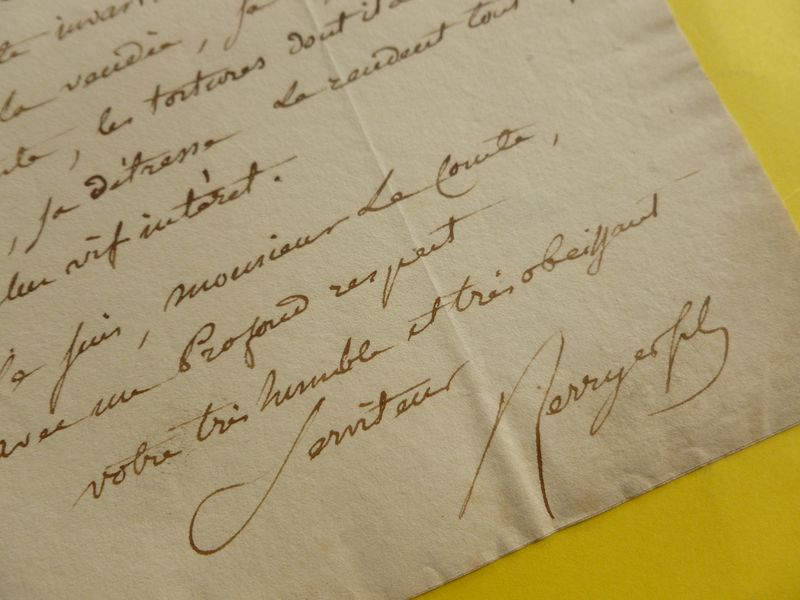 la vendée, sa
, les tortures dont il a
, sa détresse Le rendent tout
plus vif intérêt.
Je suis, monsieur Le Comte,
avec un Profond respect
votre très humble et très obeissant
Serviteur Berryer fils